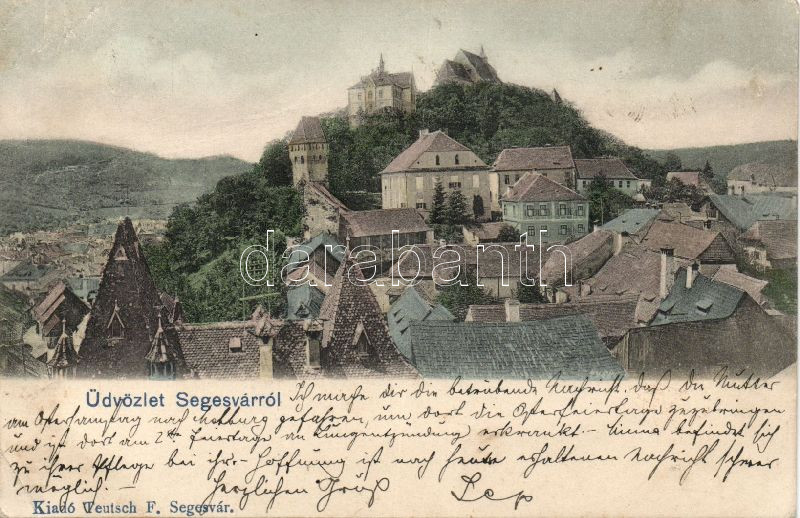 darabanth
Üdvözlet Segesvárról
Ich mache dir die betrübende Nachricht, daß die Mutter
am Ostersamstag nach gefahren, um dort die Osterfeiertage zuzubringen
und ist dort am 2ten Feiertage an Lungenentzündung erkrankt - befindet sich
zu ihrer Pflege bei ihr - Hoffnung ist nach heute erhaltenen Nachricht schwer
möglich. - Herzlichen Gruß
Kiadó Teutsch F. Segesvár.